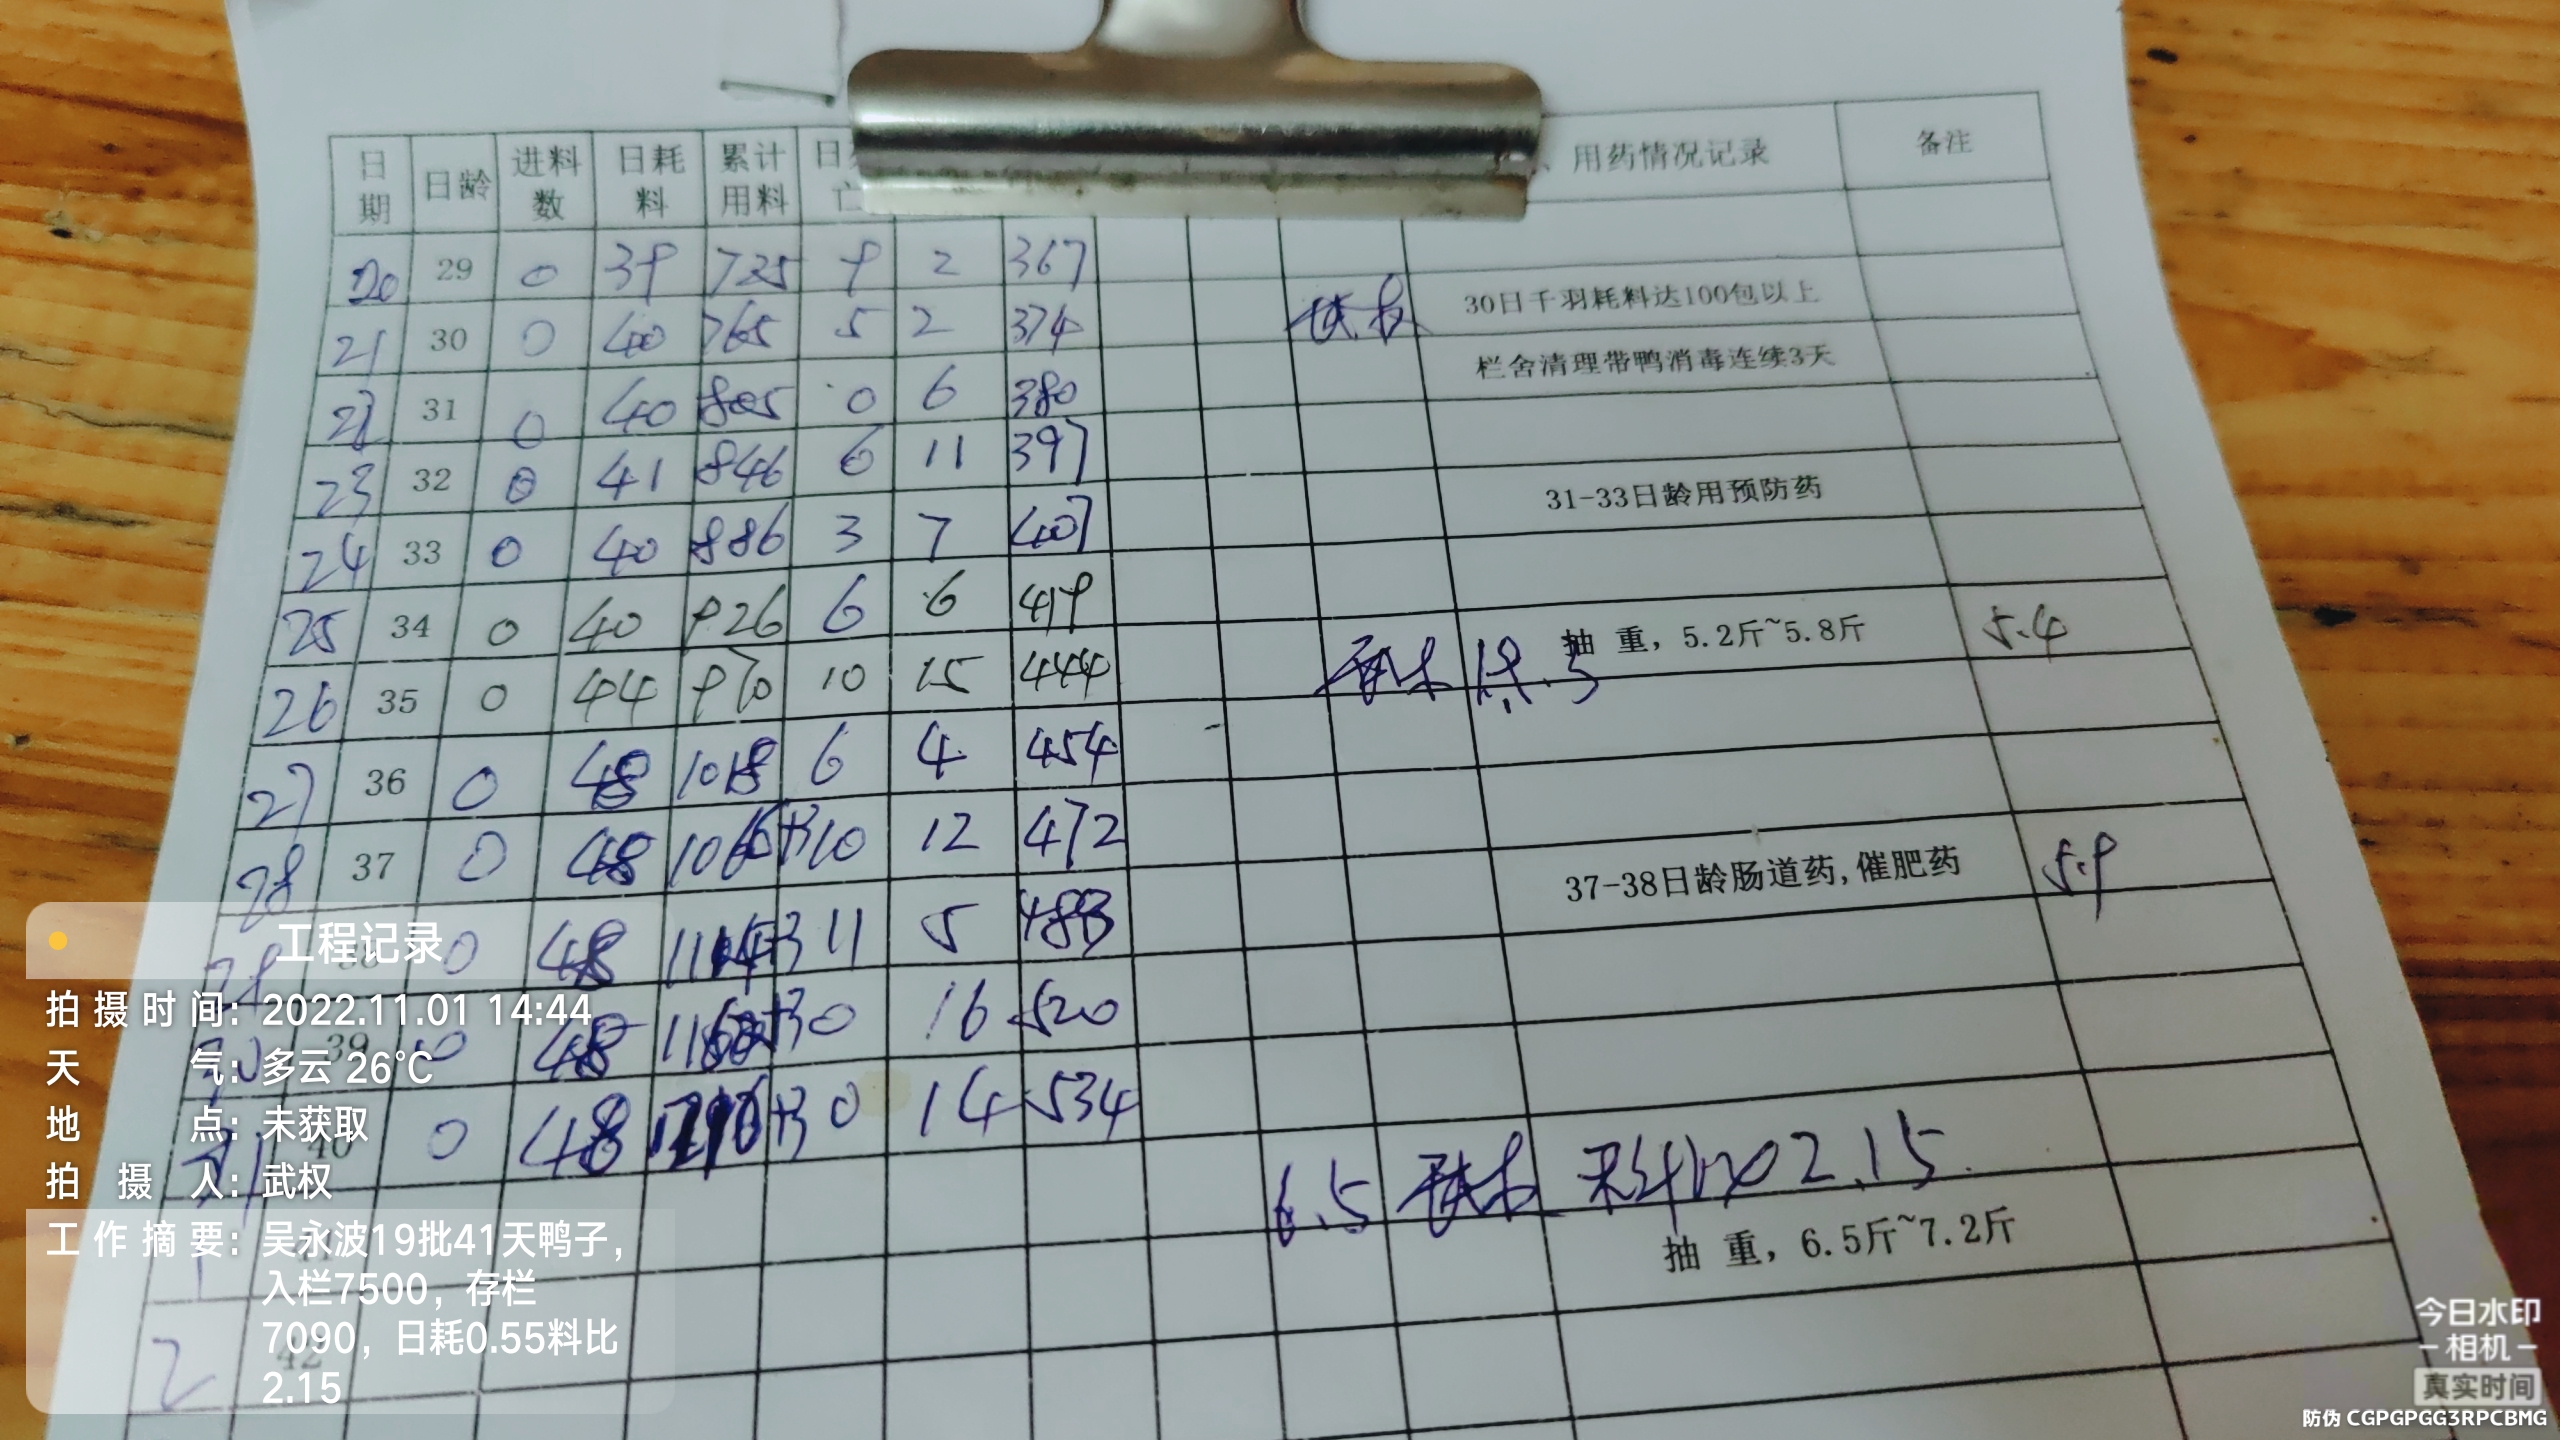 日期 日龄 进料数 日耗料 累计用料 日 亡 、用药情况记录 备注
20 29 0 39 725 9 2 367
21 30 0 40 765 5 2 374 30日千羽耗料达100包以上
22 31 0 40 805 0 6 380 栏舍清理带鸭消毒连续3天
23 32 0 41 846 6 11 397
24 33 0 40 886 3 7 407 31-33日龄用预防药
25 34 0 40 926 6 6 419
26 35 0 44 970 10 15 444 抽 重，5.2斤~5.8斤 5.4
27 36 0 48 1018 6 4 454
28 37 0 48 1066 10 12 472
0 48 1114 11 5 488 37-38日龄肠道药,催肥药 5.9
39 0 48 0 16 520
31 40 0 48 0 14 534
6.5 料 2.15
1 抽 重，6.5斤~7.2斤
2 42
工程记录
拍摄时间：2022.11.01 14:44
天气：多云 26℃
地点：未获取
拍摄人：武权
工作摘要：吴永波19批41天鸭子，
入栏7500，存栏
7090，日耗0.55料比
2.15
今日水印
相机
真实时间
防伪 CGPGPGG3RPCBMG